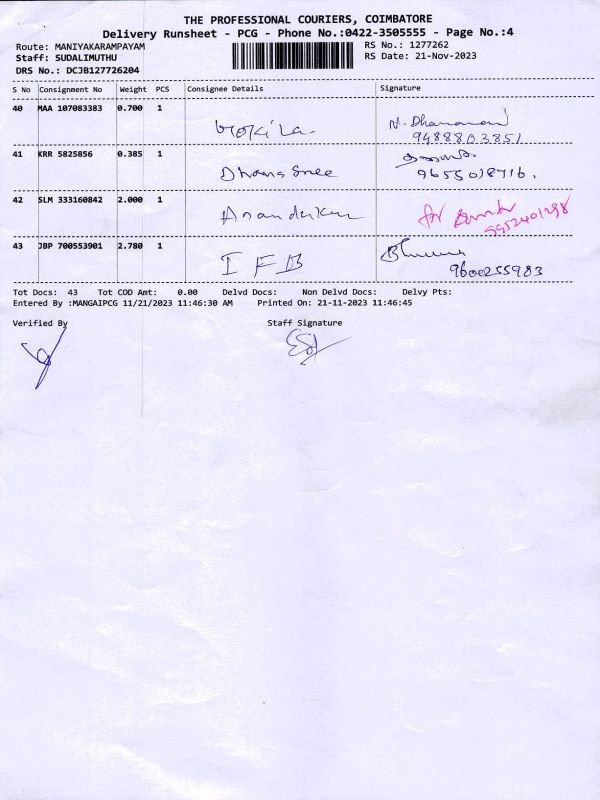 THE PROFESSIONAL COURIERS, COIMBATORE
Delivery Runsheet - PCG - Phone No.:0422-3505555 - Page No.:4
Route: MANIYAKARAMPAYAM RS No.: 1277262
Staff: SUDALIMUTHU RS Date: 21-Nov-2023
DRS No.: DCJB127726204
S No Consignment No Weight PCS Consignee Details Signature
40 MAA 107083383 0.700 1
Kokila N. Dhanamani
9488803851
41 KRR 5825856 0.385 1
Dhana Sree 9655018716.
42 SLM 333160842 2.000 1
Anandukum
5952401298
43 JBP 700553901 2.780 1
I F B
9600255983
Tot Docs: 43 Tot COD Amt: 0.00 Delvd Docs: Non Delvd Docs: Delvy Pts:
Entered By :MANGAIPCG 11/21/2023 11:46:30 AM Printed On: 21-11-2023 11:46:45
Verified By Staff Signature